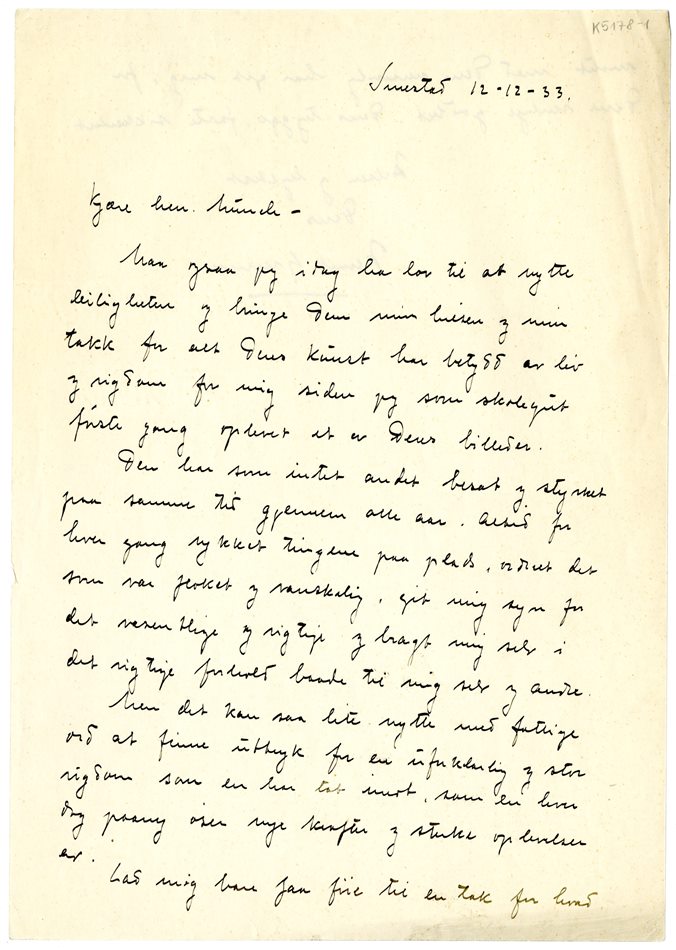 K5178-1
Smestad 12-12-33.
Kjære herr Münch –
Maa ogsaa jeg idag ha lov til at nytte
leiligheten og bringe Dem min hilsen og min
takk for alt Deres Künst har betydd av liv
og rigdom for mig siden jeg som skolegüt
første gang oplevet et av Deres billeder.
Den har som intet andet besat og styrket
paa samme tid gjennem alle aar. Altid for
hver gang rykket tingene paa plads, ordnet det
som var forket og vanskelig, git mig syn for
det væsentlige og rigtige og bragt mig selv i
det rigtige forhold baade til mig selv og andre.
Men det kan saa lite nytte med fattige
ord at finne üttryk for en üforklarlig og stor
rigdom som en har tat imot, som en hver
dag paany øser nye kræfter og sterke oplevelser
av.
Lad mig bare faa føie til en tak for hvad